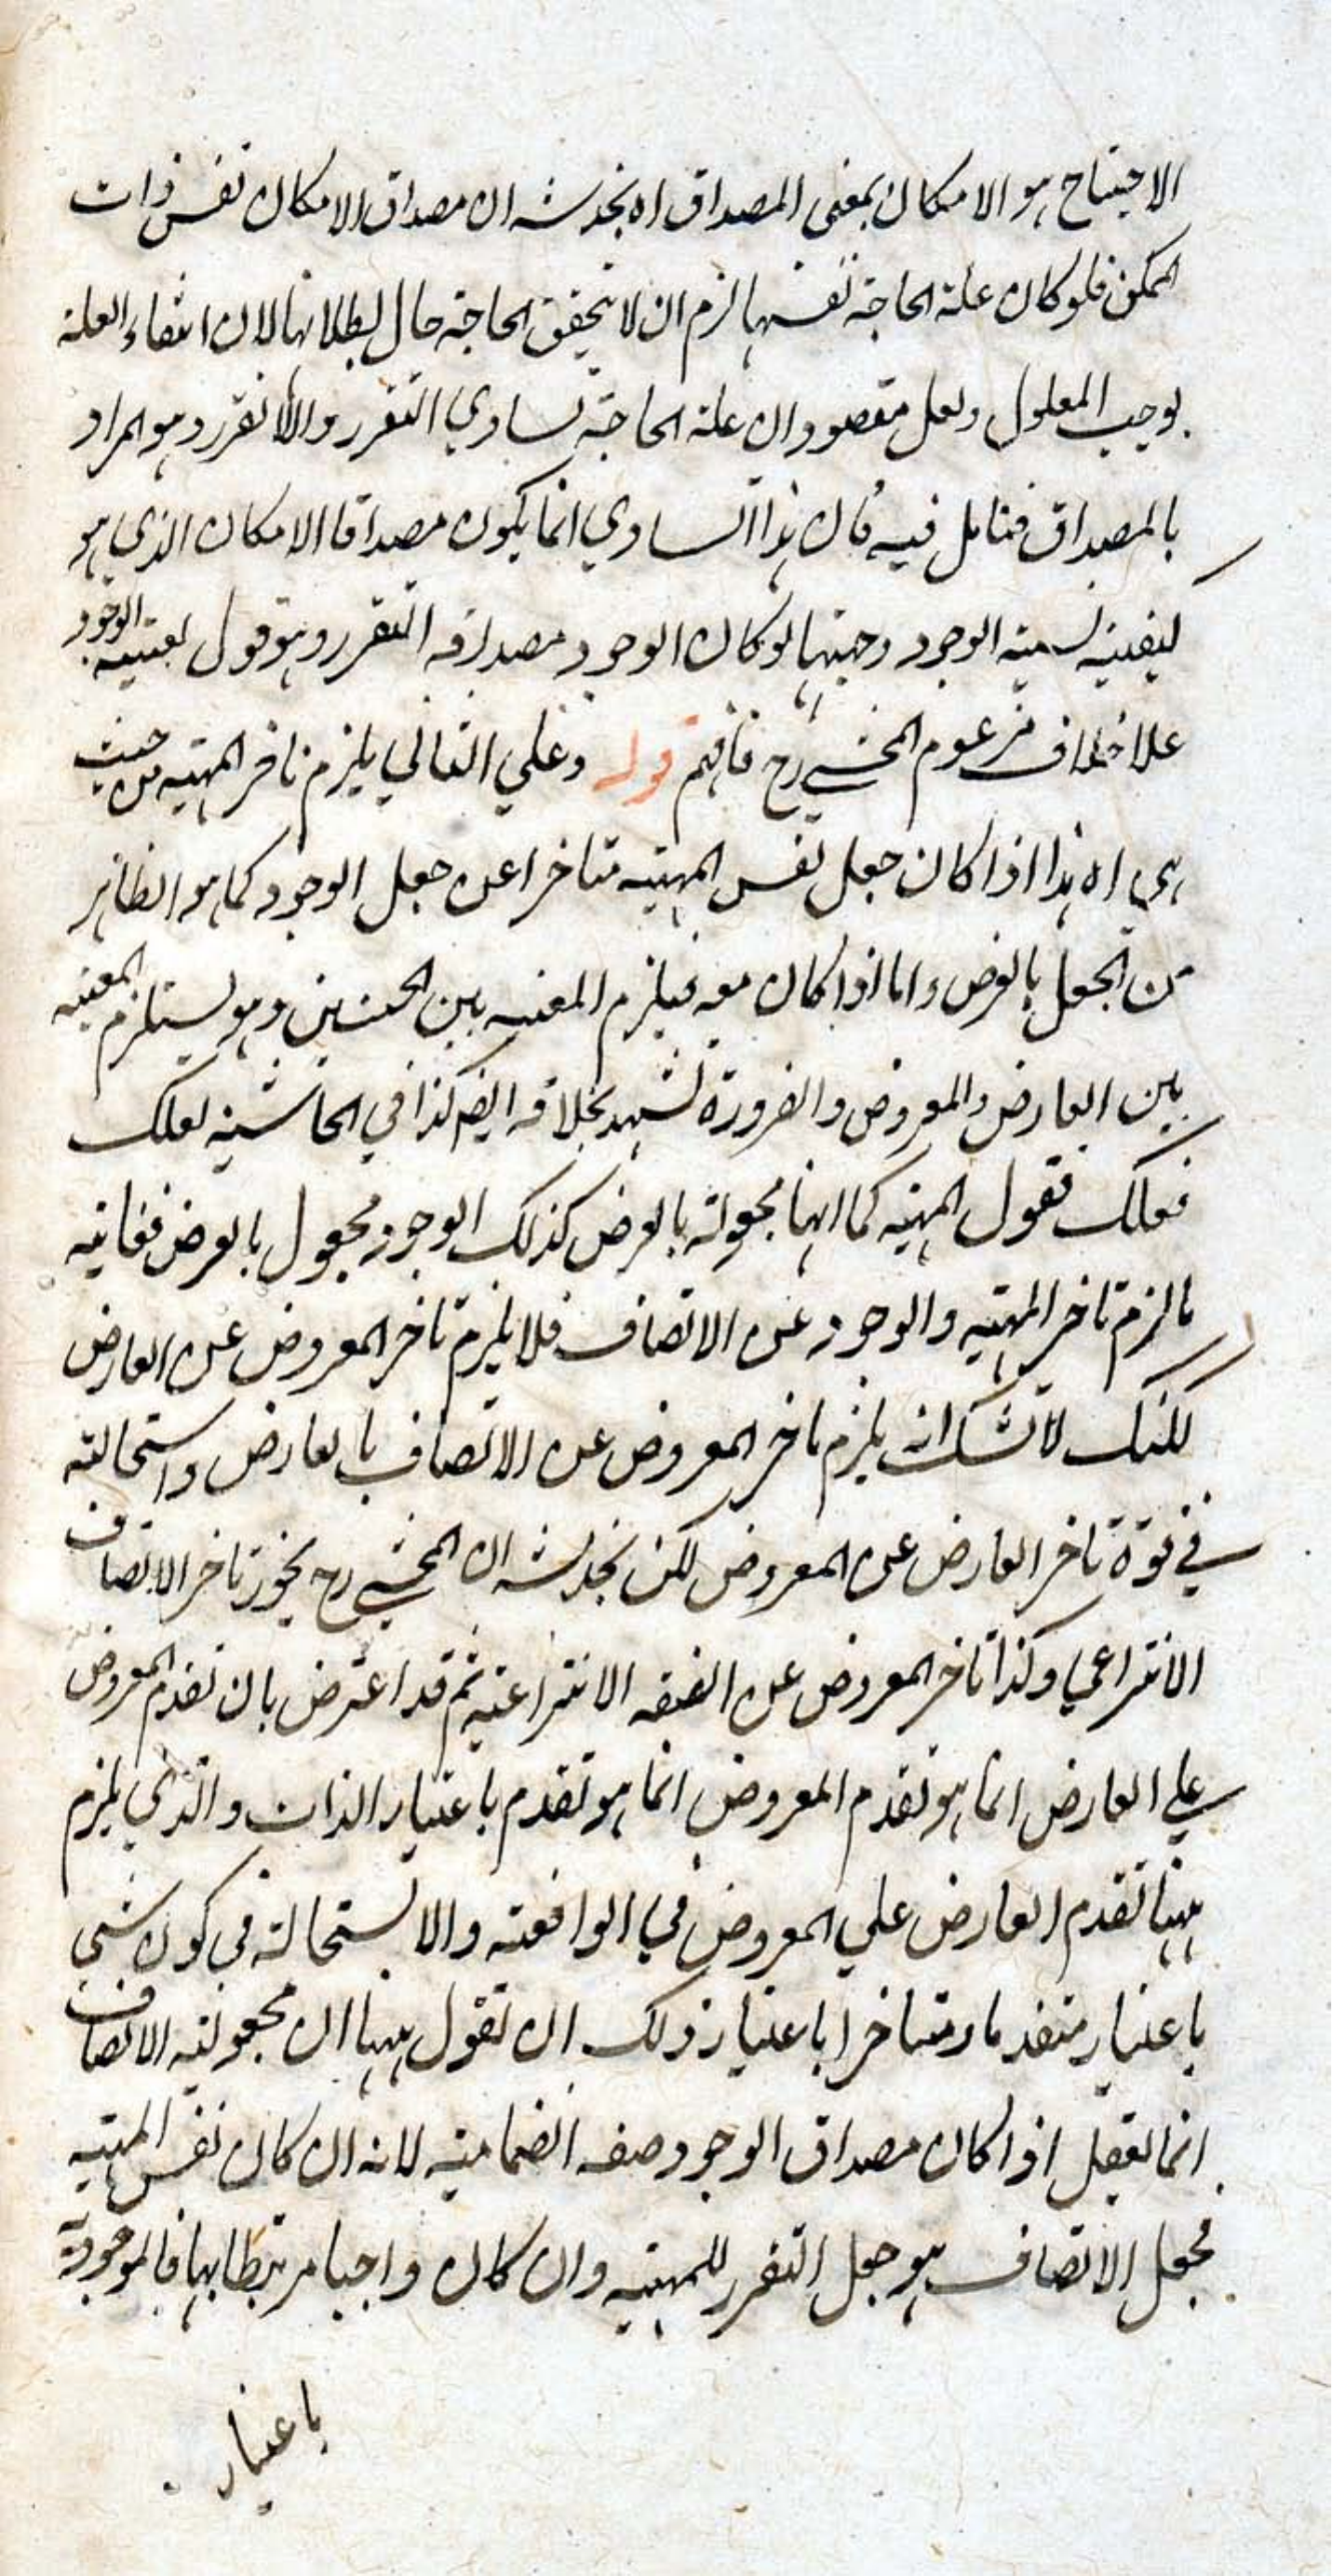 الاحتياج هو الامكان بمعنى المصداق اه يخدشه ان مصداق الامكان نفس ذات
الممكن فلو كان علة الحاجة نفسها لزم ان لا يتحقق الحاجة حال بطلانها لان انتفاء العلة
يوجب المعلول ولعل مقصوده ان علة الحاجة تساوي التقرر واللاتقرر وهو المراد
بالمصداق فتامل فيه فان هذا التساوي انما يكون مصداقا الامكان الذي هو
كيفية نسبة الوجود وجهتها لو كان الوجود مصداقه التقرر وهو قول بعينية الوجود
علا خلاف مزعوم المحشي رح فافهم قوله وعلي الثاني يلزم تاخر المهية من حيث
هي اه هذا اذا كان جعل نفس المهية متاخرا عن جعل الوجود كما هو الظاهر
من الجعل بالعرض واما اذا كان معه فيلزم المعية بين الجعلين وهو يستلزم المعية
بين العارض والمعروض والضرورة تشهد بخلافه ايضا كذا في الحاشية لعلك
فعلك تقول المهية كما انها مجعولة بالعرض كذلك الوجود مجعول بالعرض فغاية
ما لزم تاخر المهية والوجود عن الاتصاف فلا يلزم تاخر المعروض عن العارض
لكنك لا تشك انه يلزم تاخر المعروض عن الاتصاف بالعارض واستحالته
في قوة تاخر العارض عن المعروض لكن يخدشه ان المحشي رح يجوز تاخر الاتصاف
الانتزاعي وكذا تاخر المعروض عن الصفة الانتزاعية ثم قد اعترض بان تقدم المعروض
علي العارض انما هو تقدم المعروض انما هو تقدم باعتبار الذات والذي يلزم
ههنا تقدم العارض علي المعروض في الواقعة والاستحالة في كون شي
باعتبار متقدما ومتاخرا باعتبار ذلك ان تقول ههنا ان مجعولية الاتصاف
انما يعقل اذا كان مصداق الوجود صفة انضمامية لانه ان كان نفس المهية
فجعل الاتصاف هو جعل التقرر للمهية وان كان واجبا مرتبطا بها فالموجودية
باعتبار